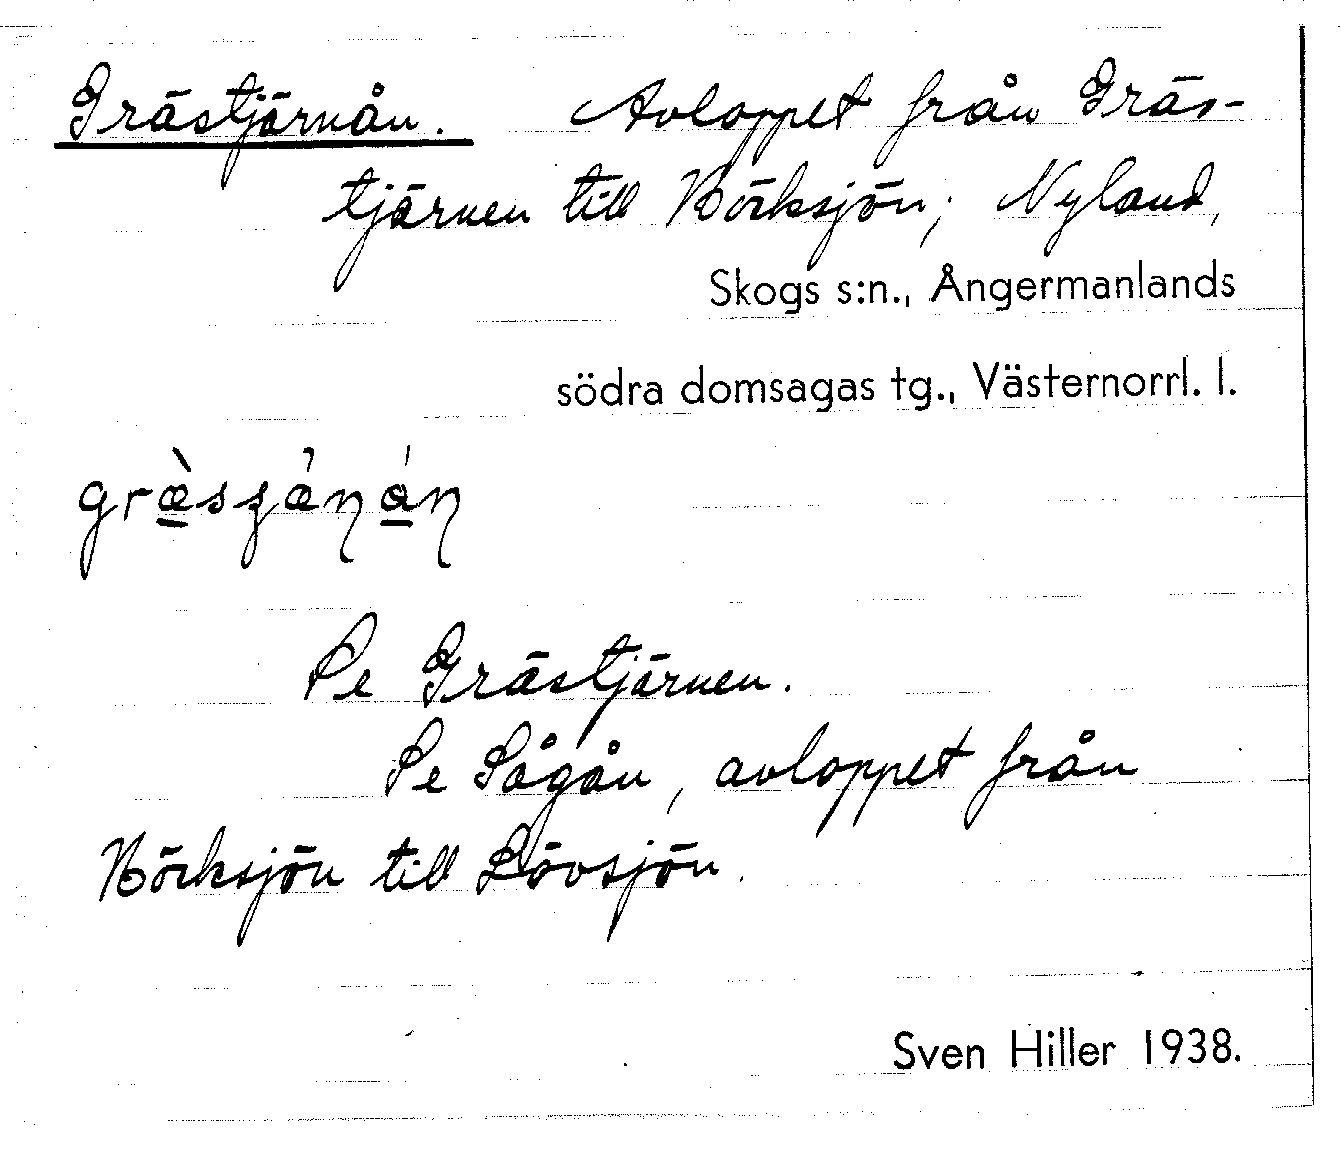 Grästjärnån. Avloppet från Gräs-
tjärnen till Körksjön; Nyland,
Skogs s:n., Ångermanlands
södra domsagas tg., Västernorrl. l.
Se Grästjärnen.
Se Sågån, avloppet från
Körksjön till Lövsjön.
Sven Hiller 1938.